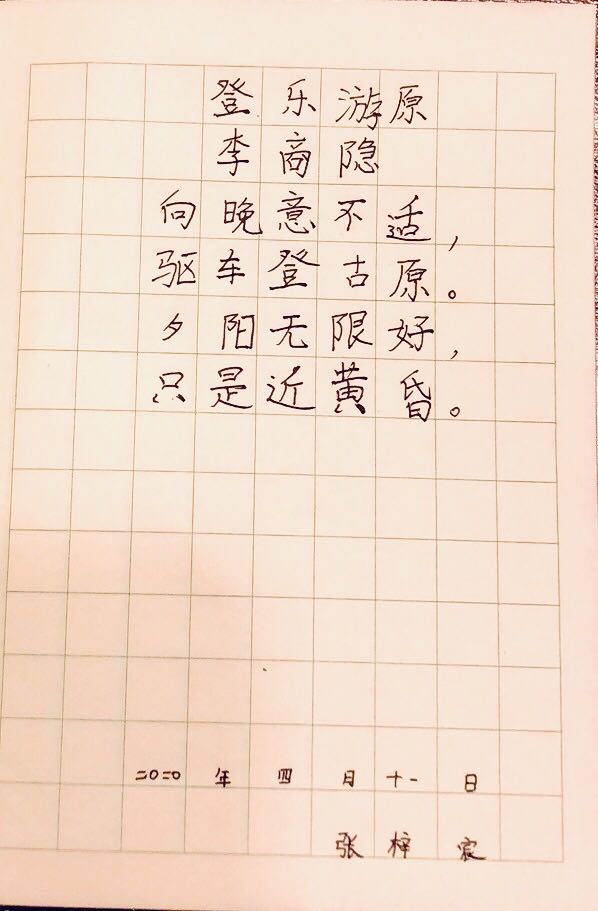 登乐游原
李商隐
向晚意不适，
驱车登古原。
夕阳无限好，
只是近黄昏。
二〇二〇年四月十一日
张梓宸